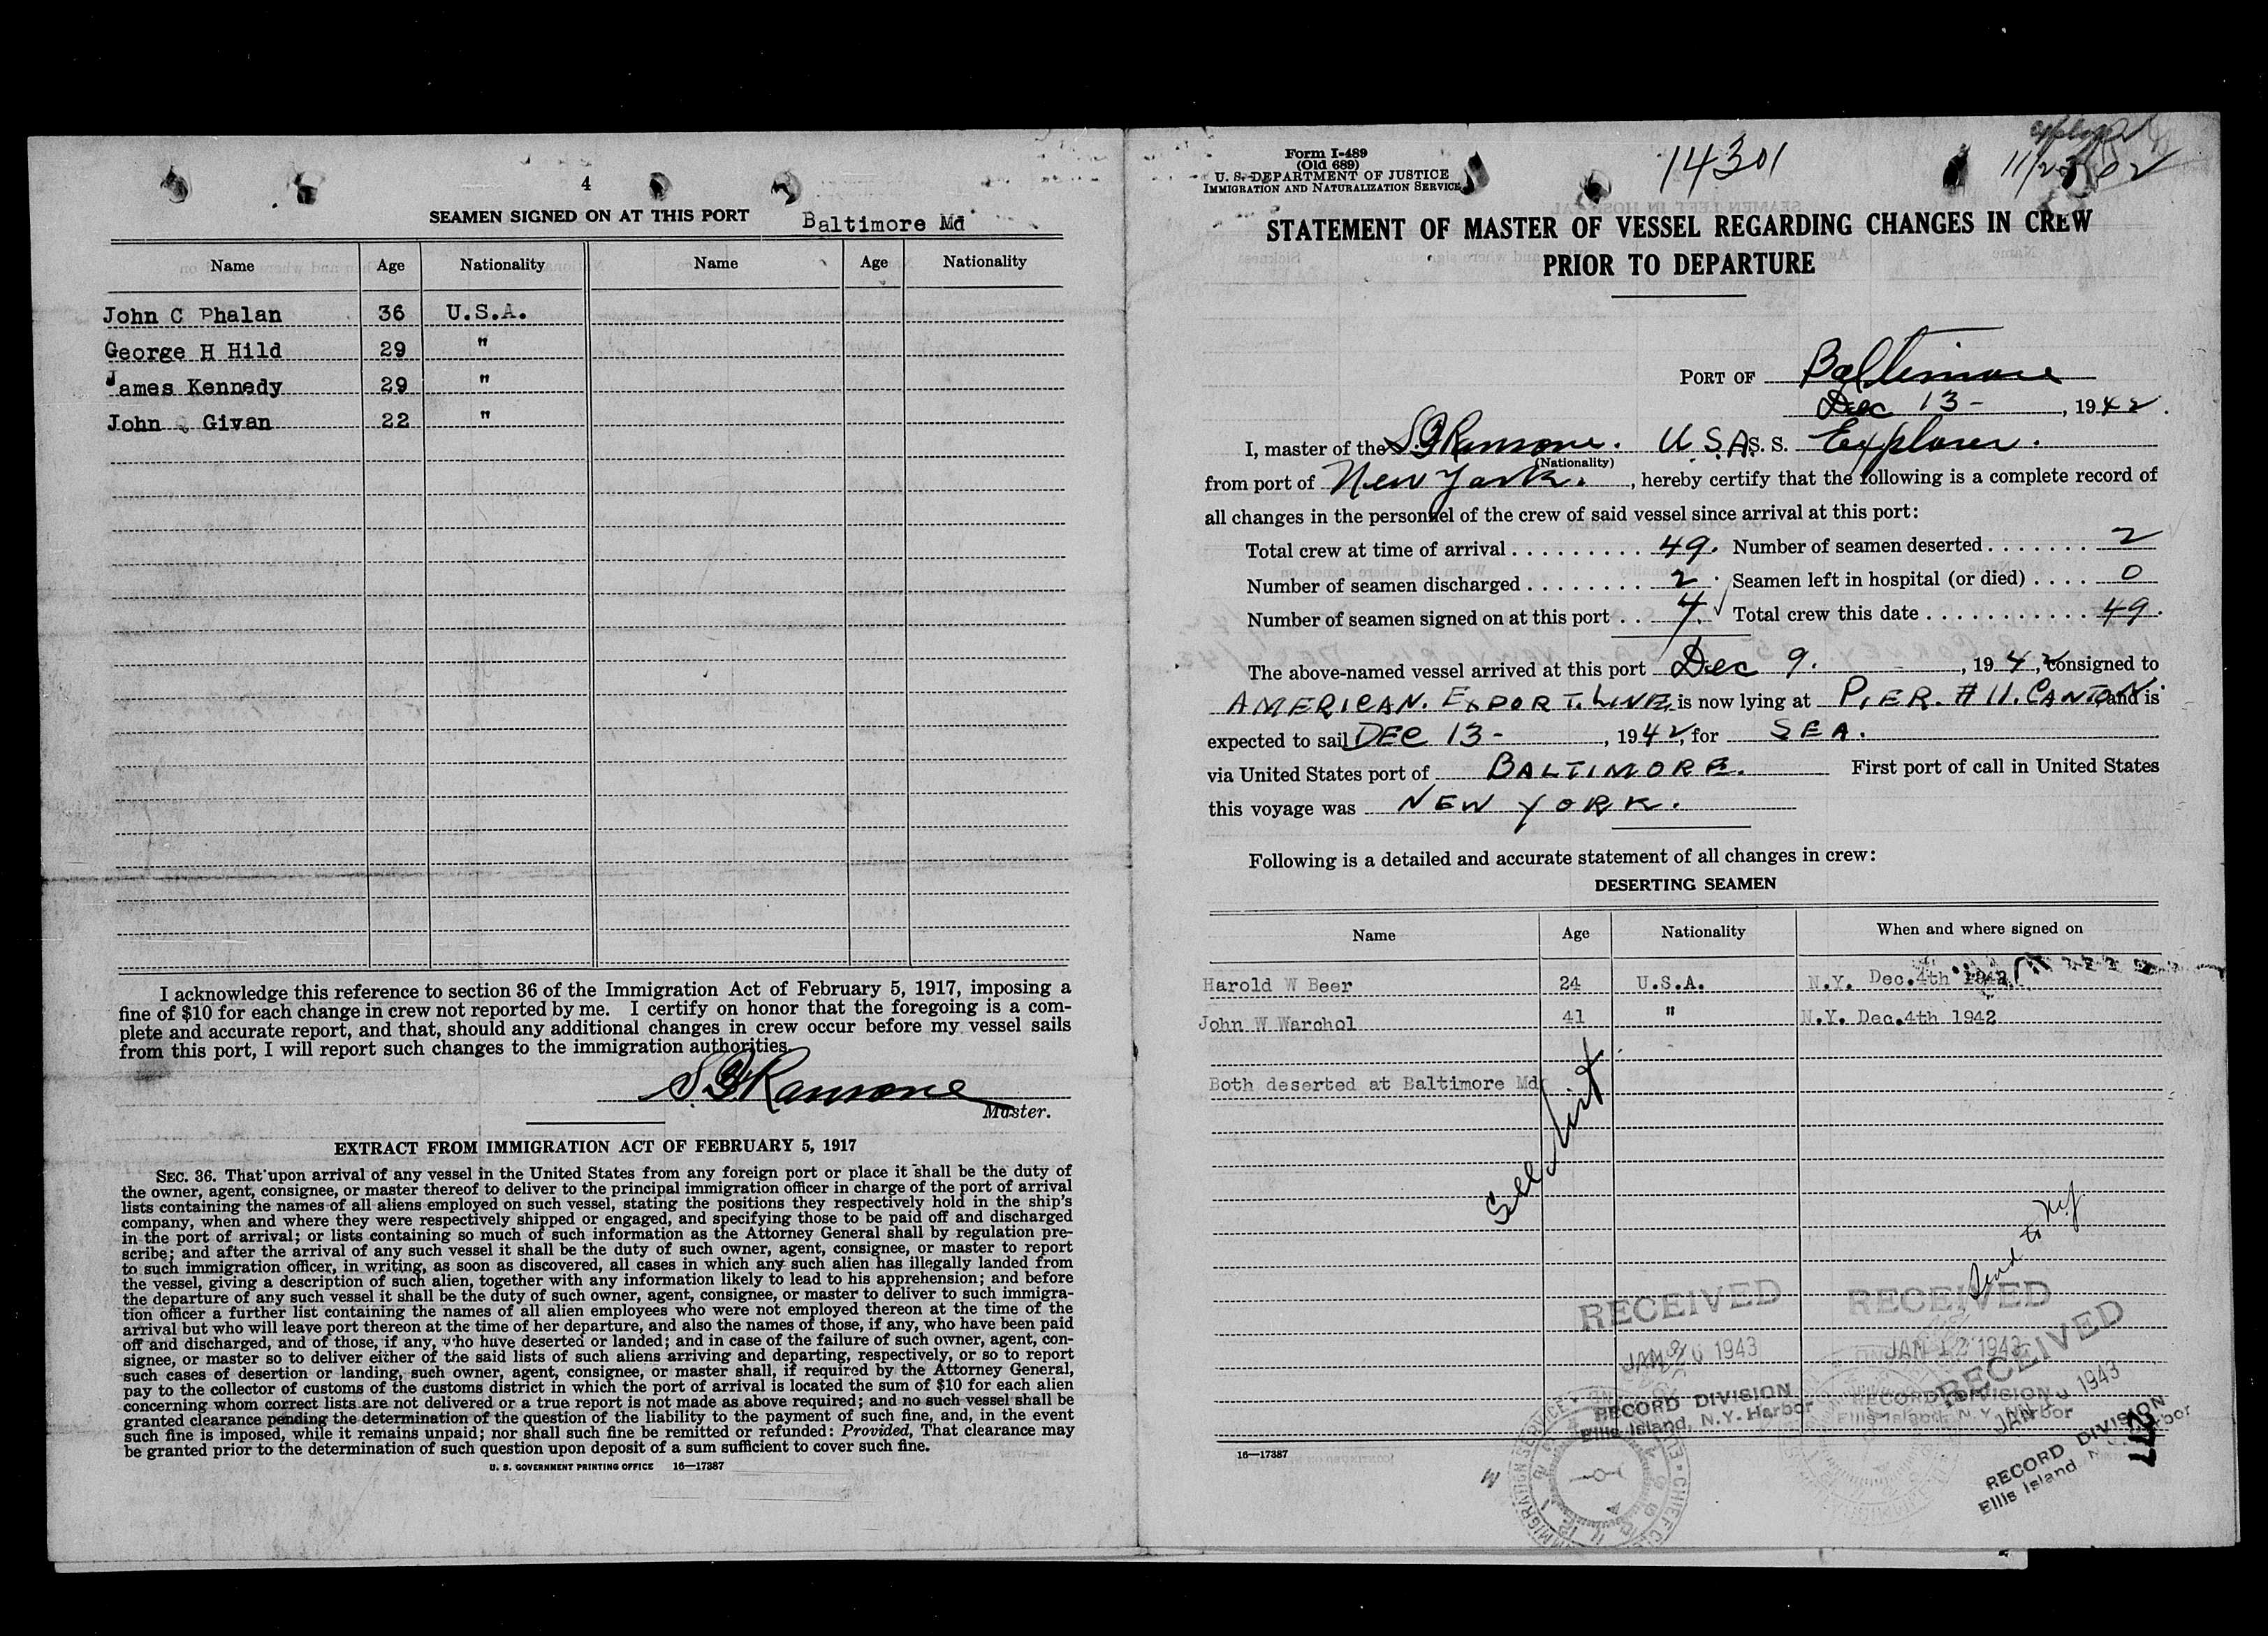 4
SEAMEN SIGNED ON AT THIS PORT Baltimore Md
Name Age Nationality Name Age Nationality
John C Phalan 36 U.S.A.
George H Hild 29 "
James Kennedy 29 "
John Q Givan 22 "
I acknowledge this reference to section 36 of the Immigration Act of February 5, 1917, imposing a
fine of $10 for each change in crew not reported by me. I certify on honor that the foregoing is a com-
plete and accurate report, and that, should any additional changes in crew occur before my vessel sails
from this port, I will report such changes to the immigration authorities.
Master.
EXTRACT FROM IMMIGRATION ACT OF FEBRUARY 5, 1917
SEC. 36. That upon arrival of any vessel in the United States from any foreign port or place it shall be the duty of
the owner, agent, consignee, or master thereof to deliver to the principal immigration officer in charge of the port of arrival
lists containing the names of all aliens employed on such vessel, stating the positions they respectively hold in the ship's
company, when and where they were respectively shipped or engaged, and specifying those to be paid off and discharged
in the port of arrival; or lists containing so much of such information as the Attorney General shall by regulation pre-
scribe; and after the arrival of any such vessel it shall be the duty of such owner, agent, consignee, or master to report
to such immigration officer, in writing, as soon as discovered, all cases in which any such alien has illegally landed from
the vessel, giving a description of such alien, together with any information likely to lead to his apprehension; and before
the departure of any such vessel it shall be the duty of such owner, agent, consignee, or master to deliver to such immigra-
tion officer a further list containing the names of all alien employees who were not employed thereon at the time of the
arrival but who will leave port thereon at the time of her departure, and also the names of those, if any, who have been paid
off and discharged, and of those, if any, who have deserted or landed; and in case of the failure of such owner, agent, con-
signee, or master so to deliver either of the said lists of such aliens arriving and departing, respectively, or so to report
such cases of desertion or landing, such owner, agent, consignee, or master shall, if required by the Attorney General,
pay to the collector of customs of the customs district in which the port of arrival is located the sum of $10 for each alien
concerning whom correct lists are not delivered or a true report is not made as above required; and no such vessel shall be
granted clearance pending the determination of the question of the liability to the payment of such fine, and, in the event
such fine is imposed, while it remains unpaid; nor shall such fine be remitted or refunded: Provided, That clearance may
be granted prior to the determination of such question upon deposit of a sum sufficient to cover such fine.
U. S. GOVERNMENT PRINTING OFFICE 16—17387
Form I-489
(Old 689)
U. S. DEPARTMENT OF JUSTICE
IMMIGRATION AND NATURALIZATION SERVICE
14301
STATEMENT OF MASTER OF VESSEL REGARDING CHANGES IN CREW
PRIOR TO DEPARTURE
PORT OF Baltimore
Dec 13 - , 1942.
I, master of the S.G Ransone. U S A S. S. Explorer.
(Nationality)
from port of New York. , hereby certify that the following is a complete record of
all changes in the personnel of the crew of said vessel since arrival at this port:
Total crew at time of arrival . . . . . . . . . 49. Number of seamen deserted . . . . . . . 2
Number of seamen discharged . . . . . . . . 2. Seamen left in hospital (or died) . . . . 0
Number of seamen signed on at this port . . 4. Total crew this date . . . . . . . . . . . . 49.
The above-named vessel arrived at this port Dec 9. , 1942, consigned to
AMERICAN. EXPORT. LINE, is now lying at PIER. #11. CANTON. and is
expected to sail DEC 13 - , 1942, for SEA.
via United States port of BALTIMORE. First port of call in United States
this voyage was NEW YORK.
Following is a detailed and accurate statement of all changes in crew:
DESERTING SEAMEN
Name Age Nationality When and where signed on
Harold W Beer 24 U.S.A. N.Y. Dec.4th 1942
John W Warchol 41 " N.Y. Dec.4th 1942
Both deserted at Baltimore Md
See List
Send to NY
RECEIVED
JAN 26 1943
RECORD DIVISION
Ellis Island, N.Y. Harbor
RECEIVED
JAN 12 1943
RECORD DIVISION
Ellis Island, N.Y. Harbor
RECEIVED
JAN 1943
RECORD DIVISION
Ellis Island N.Y. Harbor
277
16—17387